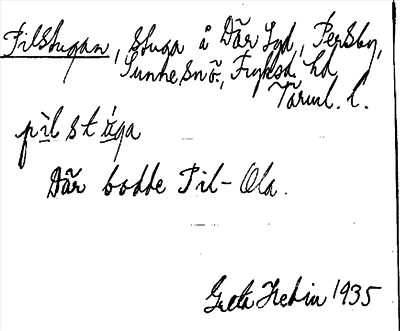 Pilstugan, stuga å Där Lgd, Persby,
Sunne sn., Fryksd. hd
Värml. l.
pìlstúga
Där bodde Pil-Ola.
Greta Hedin 1935